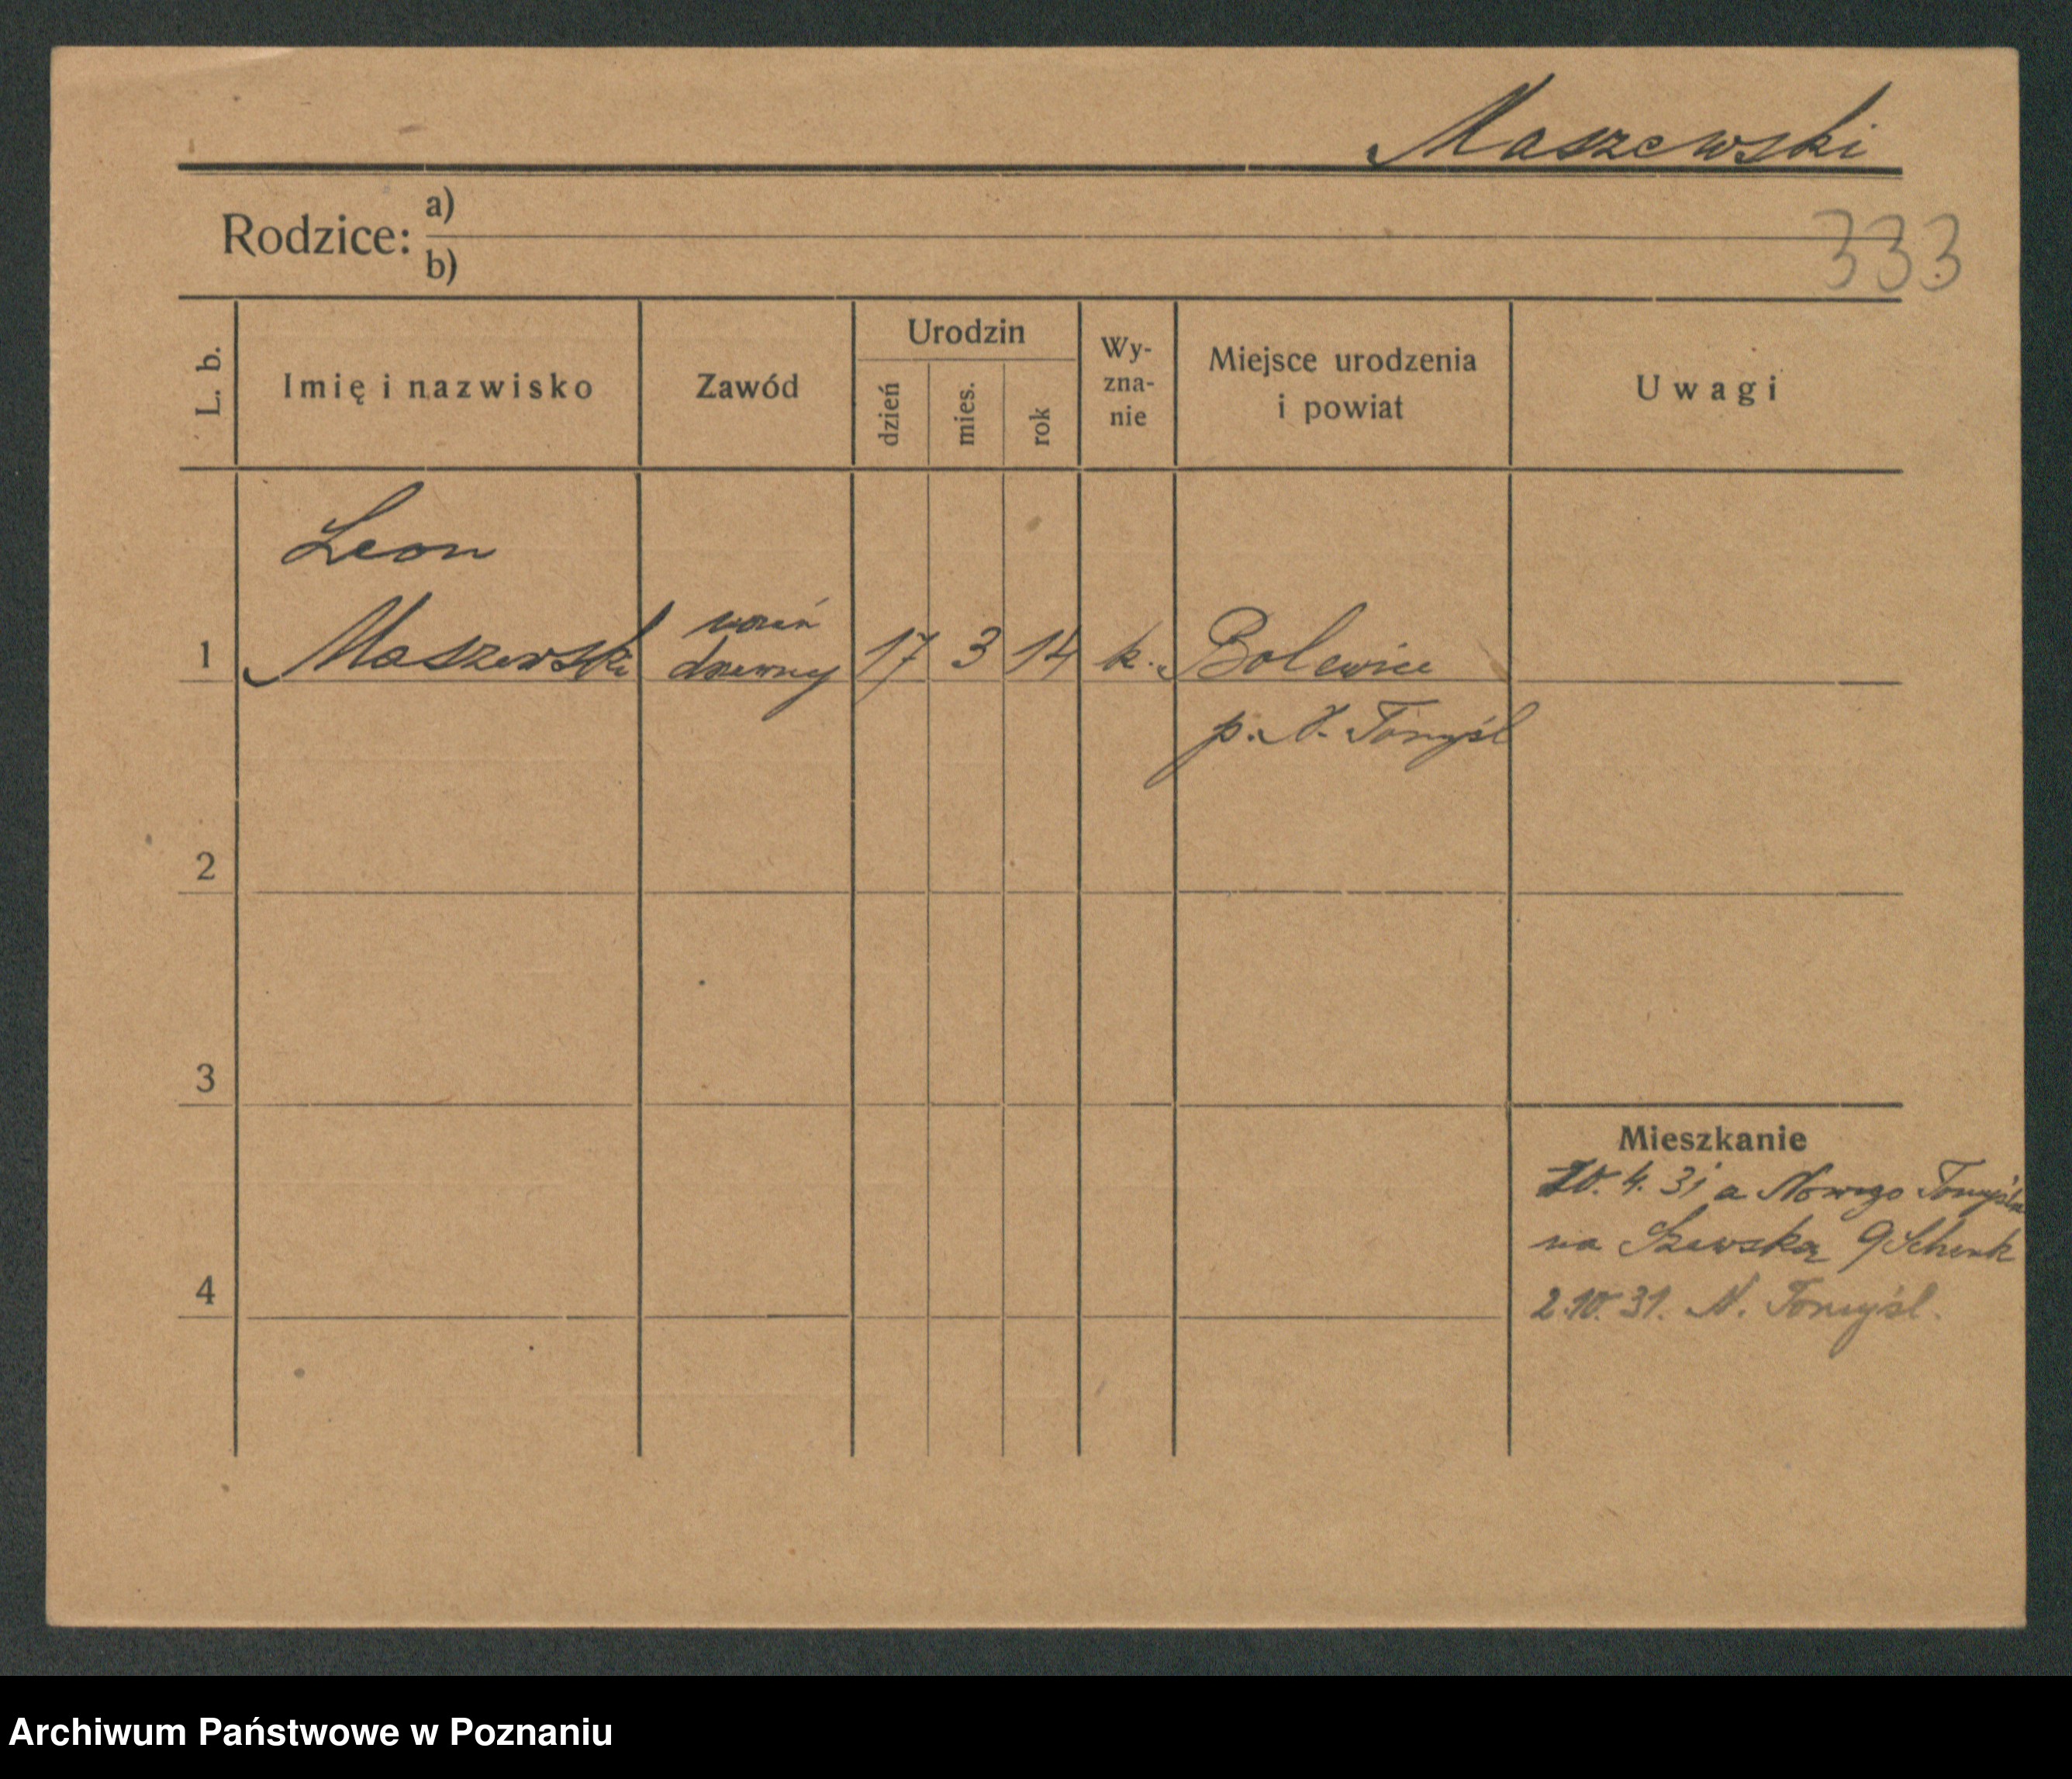 Maszewski
Rodzice: a)
b)
333
L. b.
Imię i nazwisko
Zawód
Urodzin
dzień
mies.
rok
Wy-
zna-
nie
Miejsce urodzenia
i powiat
Uwagi
Leon
1 Maszewski 17 3 14 k. Bolewice
p. N. Tomyśl
2
3
Mieszkanie
10. 4. 31 a Nowego Tomyśla
na Szewską 9 Schenk
4 2.10.31. N. Tomyśl.
Archiwum Państwowe w Poznaniu